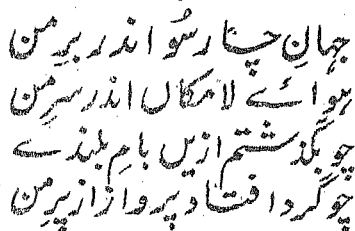 جہانِ چار سُو اندر برِ من
ہوائے لامکاں اندر سرِ من
چو بگذشتم ازیں بامِ بلندے
چو گرد افتاد پرواز از پرِ من